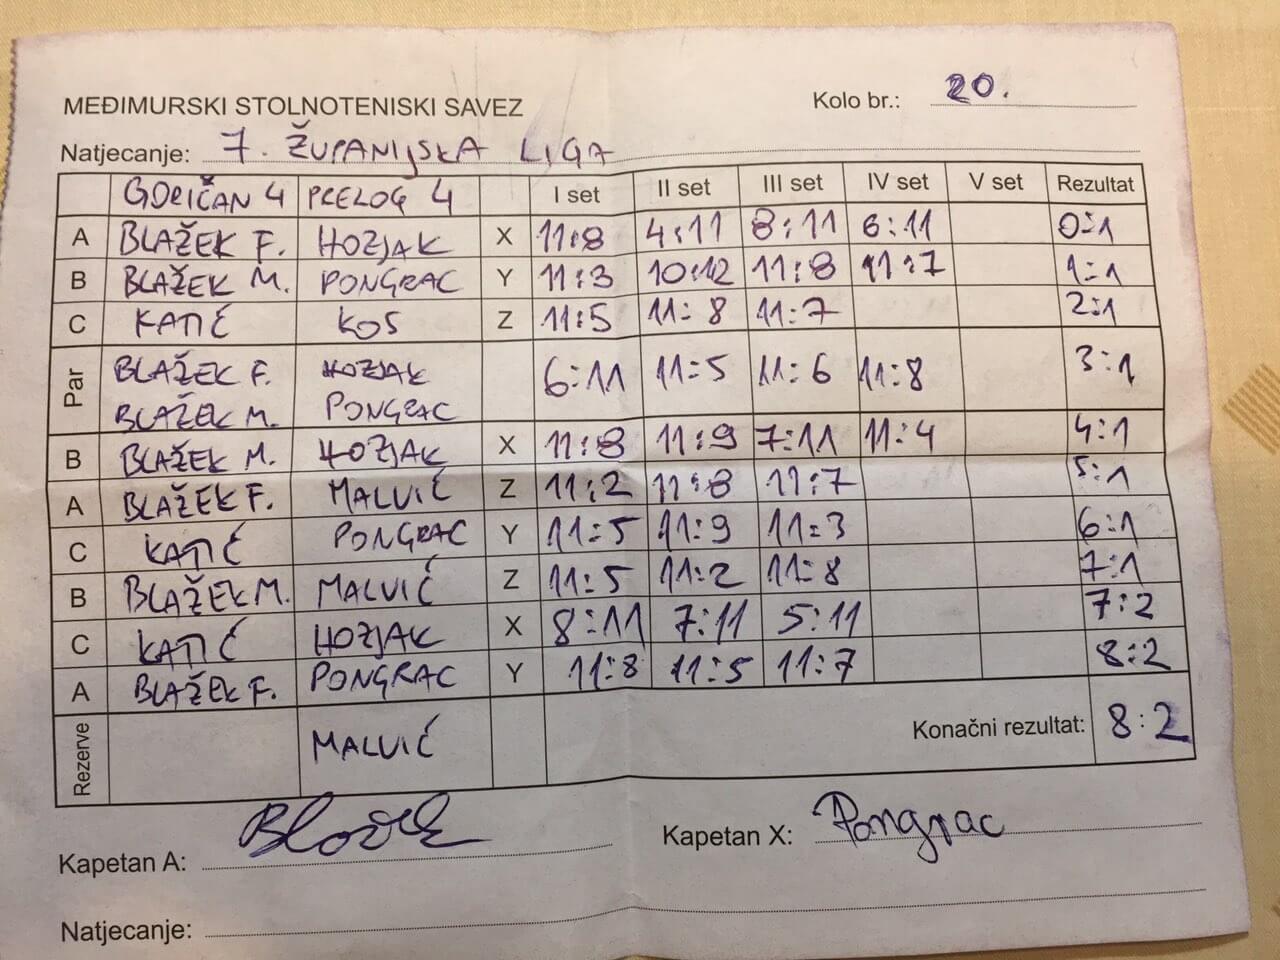 MEĐIMURSKI STOLNOTENISKI SAVEZ
Kolo br.: 20.
Natjecanje: 7. ŽUPANIJSKA LIGA
GORIČAN 4 PRELOG 4 I set II set III set IV set V set Rezultat
A BLAŽEK F. HOZJAK X 11:8 4:11 8:11 6:11 0:1
B BLAŽEK M. PONGRAC Y 11:3 10:12 11:8 11:7 1:1
C KATIĆ KOS Z 11:5 11:8 11:7 2:1
Par BLAŽEK F. HOZJAK 6:11 11:5 11:6 11:8 3:1
BLAŽEK M. PONGRAC
B BLAŽEK M. HOZJAK X 11:8 11:9 7:11 11:4 4:1
A BLAŽEK F. MALVIĆ Z 11:2 11:8 11:7 5:1
C KATIĆ PONGRAC Y 11:5 11:9 11:3 6:1
B BLAŽEK M. MALVIĆ Z 11:5 11:2 11:8 7:1
C KATIĆ HOZJAK X 8:11 7:11 5:11 7:2
A BLAŽEK F. PONGRAC Y 11:8 11:5 11:7 8:2
Rezerve MALVIĆ Konačni rezultat: 8:2
Kapetan A: Kapetan X: Pongrac
Natjecanje: